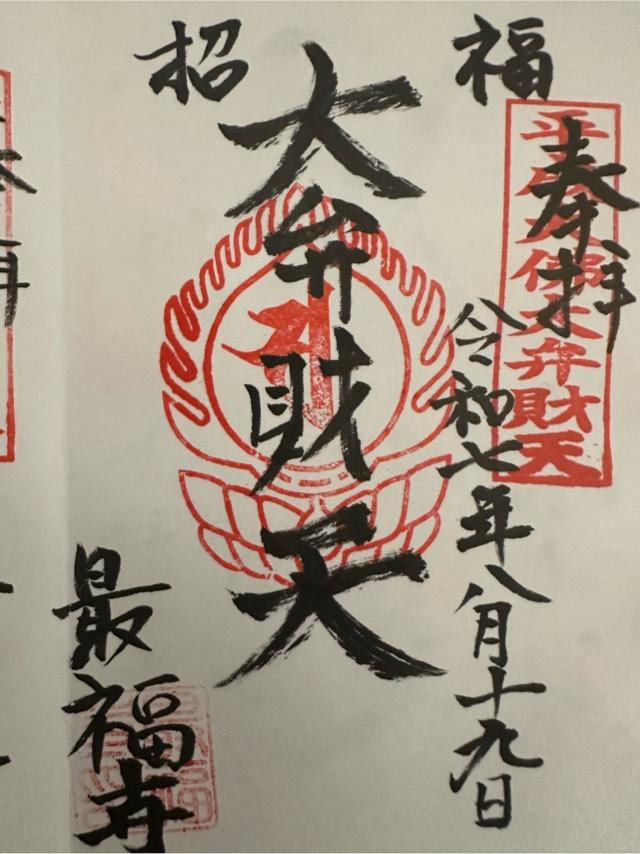 招 福
奉拝
佛大弁財天
令和七年八月十九日
大弁財天
最福寺